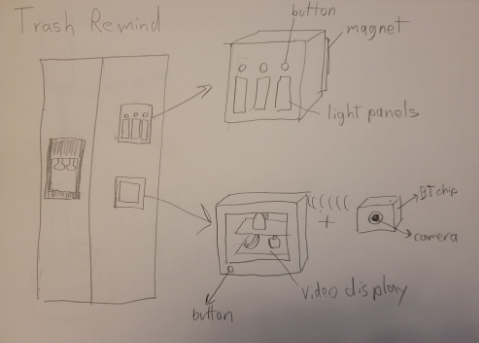 Trash Remind
button
magnet
light panels
BT chip
camera
video display
button